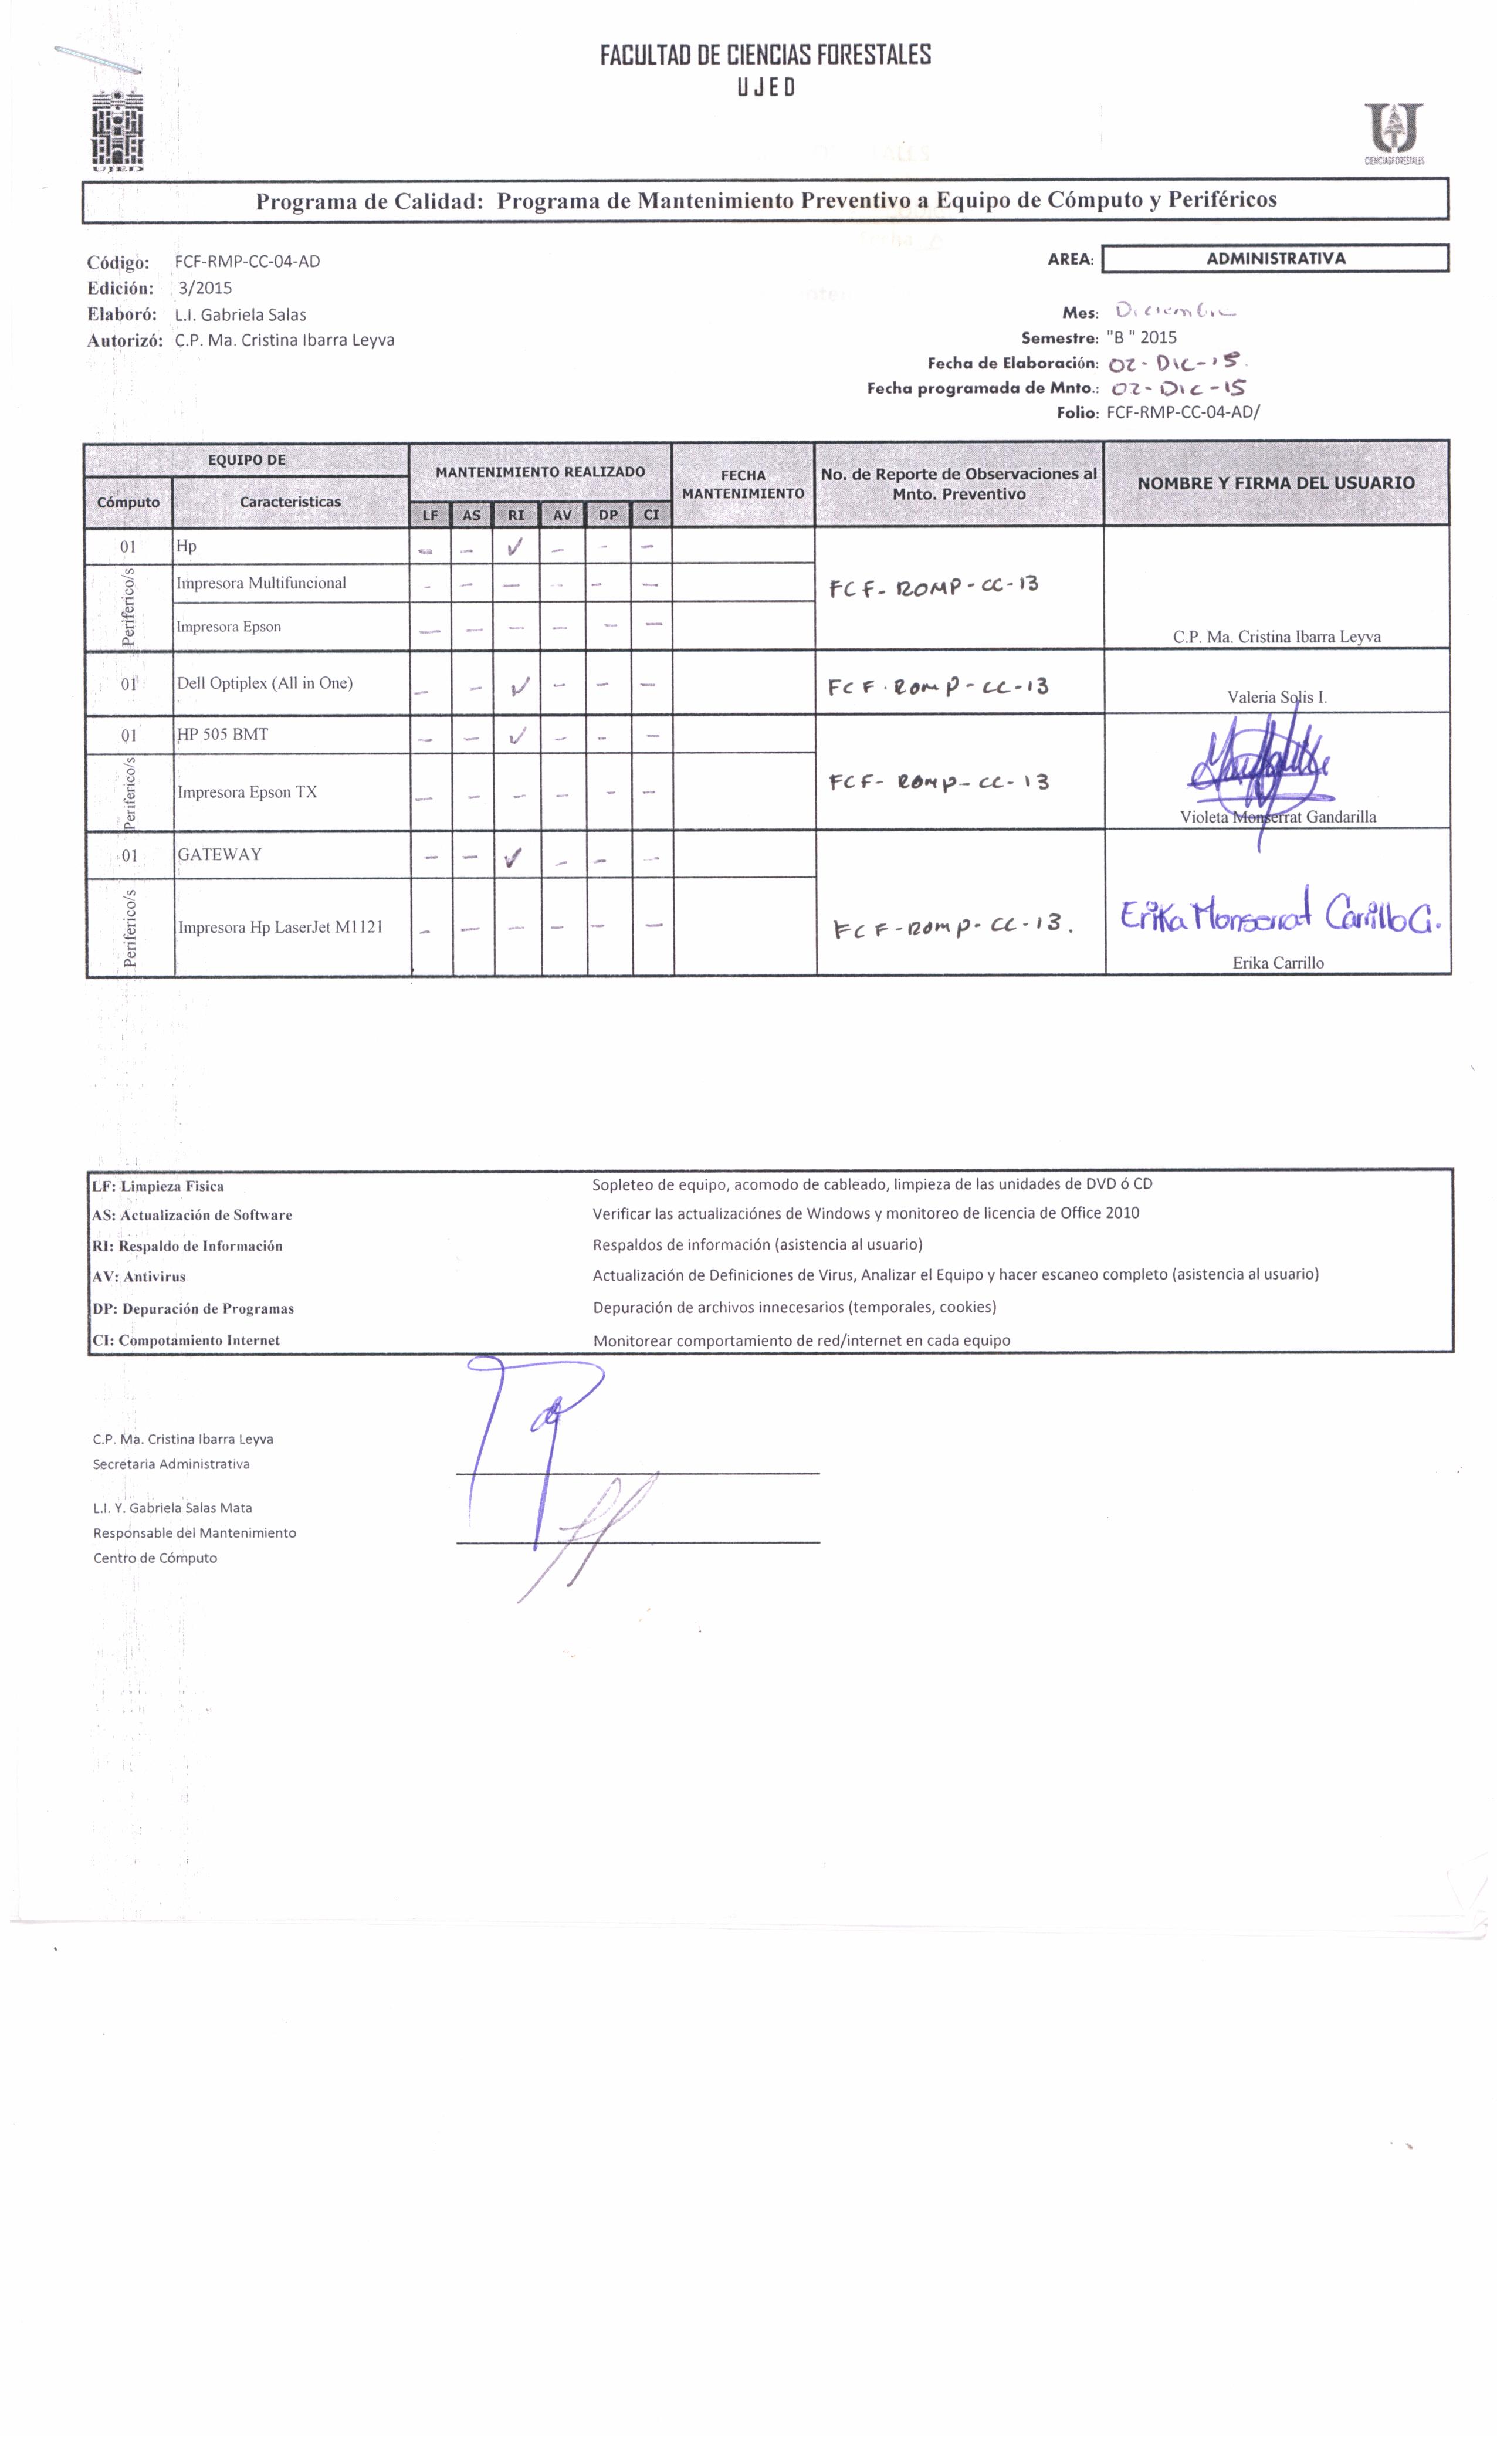 FACULTAD DE CIENCIAS FORESTALES
UJED
UJED
CIENCIAS FORESTALES
Programa de Calidad: Programa de Mantenimiento Preventivo a Equipo de Cómputo y Periféricos
Código: FCF-RMP-CC-04-AD
Edición: 3/2015
Elaboró: L.I. Gabriela Salas
Autorizó: C.P. Ma. Cristina Ibarra Leyva
AREA: ADMINISTRATIVA
Mes: Diciembre
Semestre: "B " 2015
Fecha de Elaboración: 02-DIC-15.
Fecha programada de Mnto.: 02-DIC-15
Folio: FCF-RMP-CC-04-AD/
EQUIPO DE
Cómputo Caracteristicas
MANTENIMIENTO REALIZADO
LF AS RI AV DP CI
FECHA
MANTENIMIENTO
No. de Reporte de Observaciones al
Mnto. Preventivo
NOMBRE Y FIRMA DEL USUARIO
01 Hp - - ✓ - - -
Periferico/s
Impresora Multifuncional - - - - - -
FCF-ROMP-CC-13
Impresora Epson - - - - - -
C.P. Ma. Cristina Ibarra Leyva
01 Dell Optiplex (All in One) - - ✓ - - - FCF.ROMP-CC-13
Valeria Solis I.
01 HP 505 BMT - - ✓ - - -
Periferico/s
Impresora Epson TX - - - - - -
FCF-ROMP-CC-13
Violeta Monserrat Gandarilla
01 GATEWAY - - ✓ - - -
Periferico/s
Impresora Hp LaserJet M1121 - - - - - - FCF-ROMP-CC-13.
Erika Monserrat Carrillo G.
Erika Carrillo
LF: Limpieza Fisica Sopleteo de equipo, acomodo de cableado, limpieza de las unidades de DVD ó CD
AS: Actualización de Software Verificar las actualizaciónes de Windows y monitoreo de licencia de Office 2010
RI: Respaldo de Información Respaldos de información (asistencia al usuario)
AV: Antivirus Actualización de Definiciones de Virus, Analizar el Equipo y hacer escaneo completo (asistencia al usuario)
DP: Depuración de Programas Depuración de archivos innecesarios (temporales, cookies)
CI: Compotamiento Internet Monitorear comportamiento de red/internet en cada equipo
C.P. Ma. Cristina Ibarra Leyva
Secretaria Administrativa
L.I. Y. Gabriela Salas Mata
Responsable del Mantenimiento
Centro de Cómputo